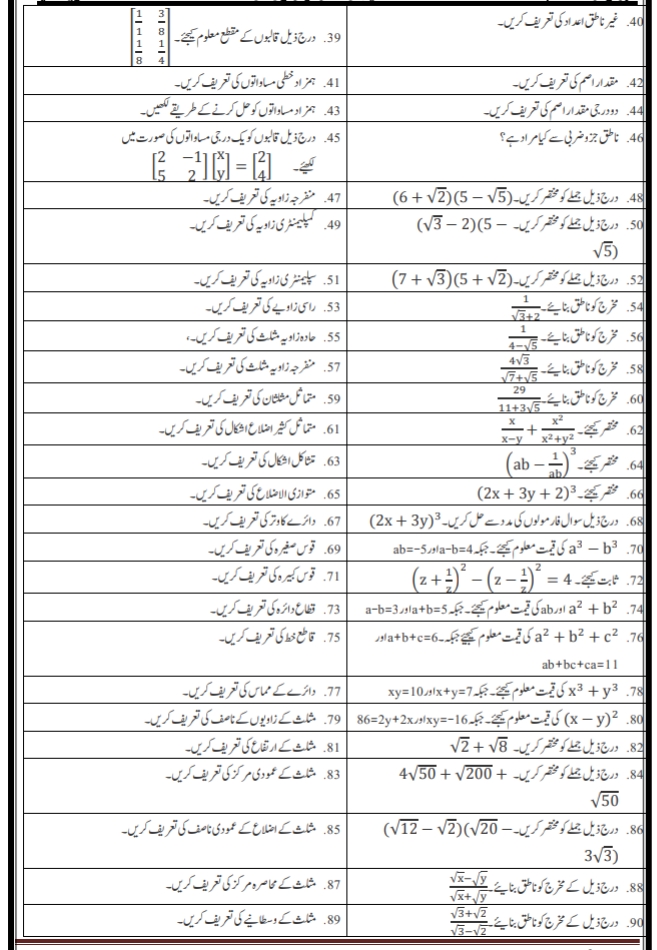 39. درج ذیل قالبوں کے مقطع معلوم کیجئے۔ [1/1 3/8; 1/8 1/4]
40. غیر ناطق اعداد کی تعریف کریں۔
41. ہمزاد خطی مساواتوں کی تعریف کریں۔
42. مقدار اصم کی تعریف کریں۔
43. ہمزاد مساواتوں کو حل کرنے کے طریقے لکھیں۔
44. دو درجی مقدار اصم کی تعریف کریں۔
45. درج ذیل قالبوں کو یک درجی مساواتوں کی صورت میں
لکھیئے۔ [2 −1; 5 2][x; y] = [2; 4]
46. ناطق جزو ضربی سے کیا مراد ہے؟
47. منفرجہ زاویہ کی تعریف کریں۔
48. درج ذیل جملے کو مختصر کریں۔ (6 + √2)(5 − √5)
49. کمپلیمنٹری زاویہ کی تعریف کریں۔
50. درج ذیل جملے کو مختصر کریں۔ (√3 − 2)(5 −
√5)
51. سپلیمنٹری زاویہ کی تعریف کریں۔
52. درج ذیل جملے کو مختصر کریں۔ (7 + √3)(5 + √2)
53. راسی زاویے کی تعریف کریں۔
54. مخرج کو ناطق بنایئے۔ 1/(√3+2)
55. حادہ زاویہ مثلث کی تعریف کریں۔،
56. مخرج کو ناطق بنایئے۔ 1/(4−√5)
57. منفرجہ زاویہ مثلث کی تعریف کریں۔
58. مخرج کو ناطق بنایئے۔ 4√3/(√7+√5)
59. متماثل مثلثان کی تعریف کریں۔
60. مخرج کو ناطق بنایئے۔ 29/(11+3√5)
61. متماثل کثیر اضلاع اشکال کی تعریف کریں۔
62. مختصر کیجئے۔ x/(x−y) + x²/(x²+y²)
63. متشاکل اشکال کی تعریف کریں۔
64. مختصر کیجئے۔ (ab − 1/ab)³
65. متوازی الاضلاع کی تعریف کریں۔
66. مختصر کیجئے۔ (2x + 3y + 2)³
67. دائرے کا وتر کی تعریف کریں۔
68. درج ذیل سوال فارمولوں کی مدد سے حل کریں۔ (2x + 3y)³
69. قوس صغیرہ کی تعریف کریں۔
70. a³ − b³ کی قیمت معلوم کیجئے۔ جبکہ a−b=4 اور ab=−5
71. قوس کبیرہ کی تعریف کریں۔
72. ثابت کیجئے۔ (z + 1/z)² − (z − 1/z)² = 4
73. قطاع دائرہ کی تعریف کریں۔
74. a² + b² اور ab کی قیمت معلوم کیجئے۔ جبکہ a+b=5 اور a−b=3
75. قاطع خط کی تعریف کریں۔
76. a² + b² + c² کی قیمت معلوم کیجئے جبکہ۔ a+b+c=6 اور
ab+bc+ca=11
77. دائرے کے مماس کی تعریف کریں۔
78. x³ + y³ کی قیمت معلوم کیجئے۔ جبکہ x+y=7 اور xy=10
79. مثلث کے زاویوں کے ناصف کی تعریف کریں۔
80. (x − y)² کی قیمت معلوم کیجئے۔ جبکہ xy=−16 اور 86=2y+2x
81. مثلث کے ارتفاع کی تعریف کریں۔
82. درج ذیل جملے کو مختصر کریں۔ √2 + √8
83. مثلث کے عمودی مرکز کی تعریف کریں۔
84. درج ذیل جملے کو مختصر کریں۔ 4√50 + √200 +
√50
85. مثلث کے اضلاع کے عمودی ناصف کی تعریف کریں۔
86. درج ذیل جملے کو مختصر کریں۔ (√12 − √2)(√20 −
3√3)
87. مثلث کے محاصرہ مرکز کی تعریف کریں۔
88. درج ذیل کے مخرج کو ناطق بنایئے۔ (√x−√y)/(√x+√y)
89. مثلث کے وسطانیے کی تعریف کریں۔
90. درج ذیل کے مخرج کو ناطق بنایئے۔ (√3+√2)/(√3−√2)